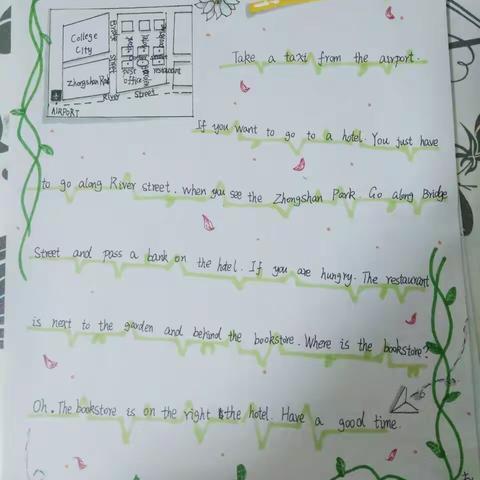 College
City
Bridge
Street
Zhongshan
Post
office
restaurant
River Street
AIRPORT
Take a taxi from the airport.
If you want to go to a hotel. You just have
to go along River street. when you see the Zhongshan Park. Go along Bridge
Street and pass a bank on the hotel. If you are hungry. The restaurant
is next to the garden and behind the bookstore. Where is the bookstore?
Oh. The bookstore is on the right the hotel. Have a good time.